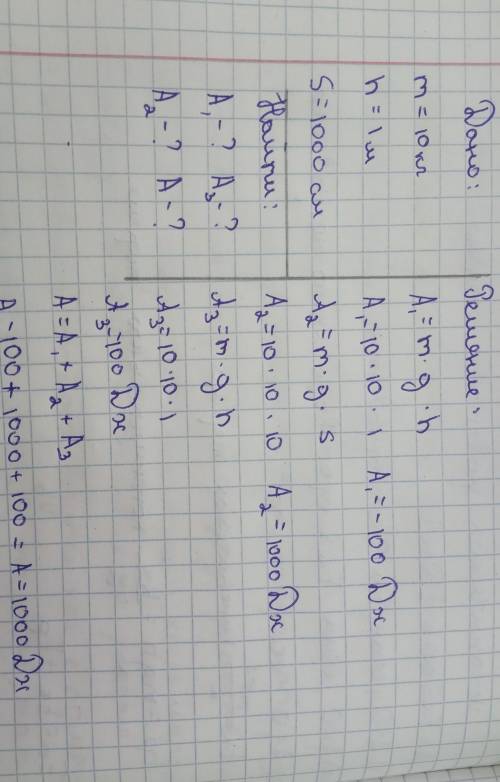 Дано:
m = 10 кг
h = 1 м
S = 1000 см
Найти:
A₁ - ? A₃ - ?
A₂ - ? A - ?
Решение:
A₁ = m · g · h
A₁ = 10 · 10 · 1 A₁ = -100 Дж
A₂ = m · g · s
A₂ = 10 · 10 · 10 A₂ = 1000 Дж
A₃ = m · g · h
A₃ = 10 · 10 · 1
A₃ = 100 Дж
A = A₁ + A₂ + A₃
A - 100 + 1000 + 100 = A = 1000 Дж